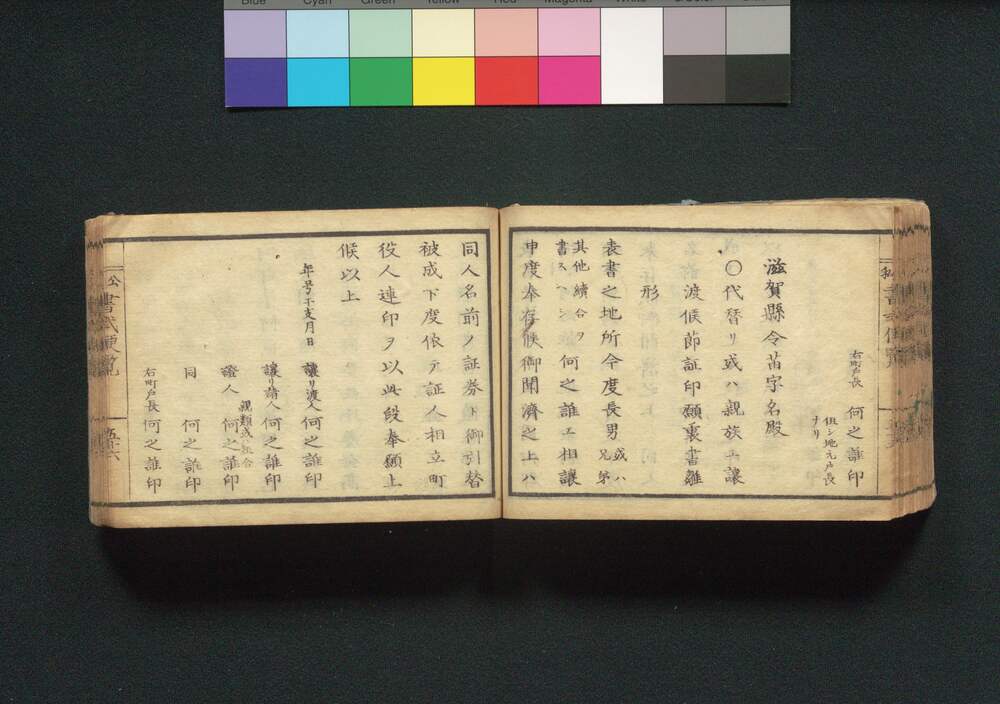 Blue Cyan Green Yellow Red Magenta White 3/Color
右町戸長 何之誰印
但シ地元戸長
ナリ
滋賀縣令苗字名殿
〇代替リ或ハ親族エ讓
渡候節証印願裏書雛
形
表書之地所今度長男或ハ兄弟
其他續合ヲ書スヘシ何之誰エ相讓
申度奉存候御聞濟之上ハ
同人名前ノ証券ト御引替
被成下度依テ証人相立町
役人連印ヲ以此段奉願上
候以上
年号干支月日 讓リ渡人何之誰印
讓リ請人何之誰印
親類或ハ組合
證人 何之誰印
同 何之誰印
右町戸長何之誰印
公 書式便覧 五十六